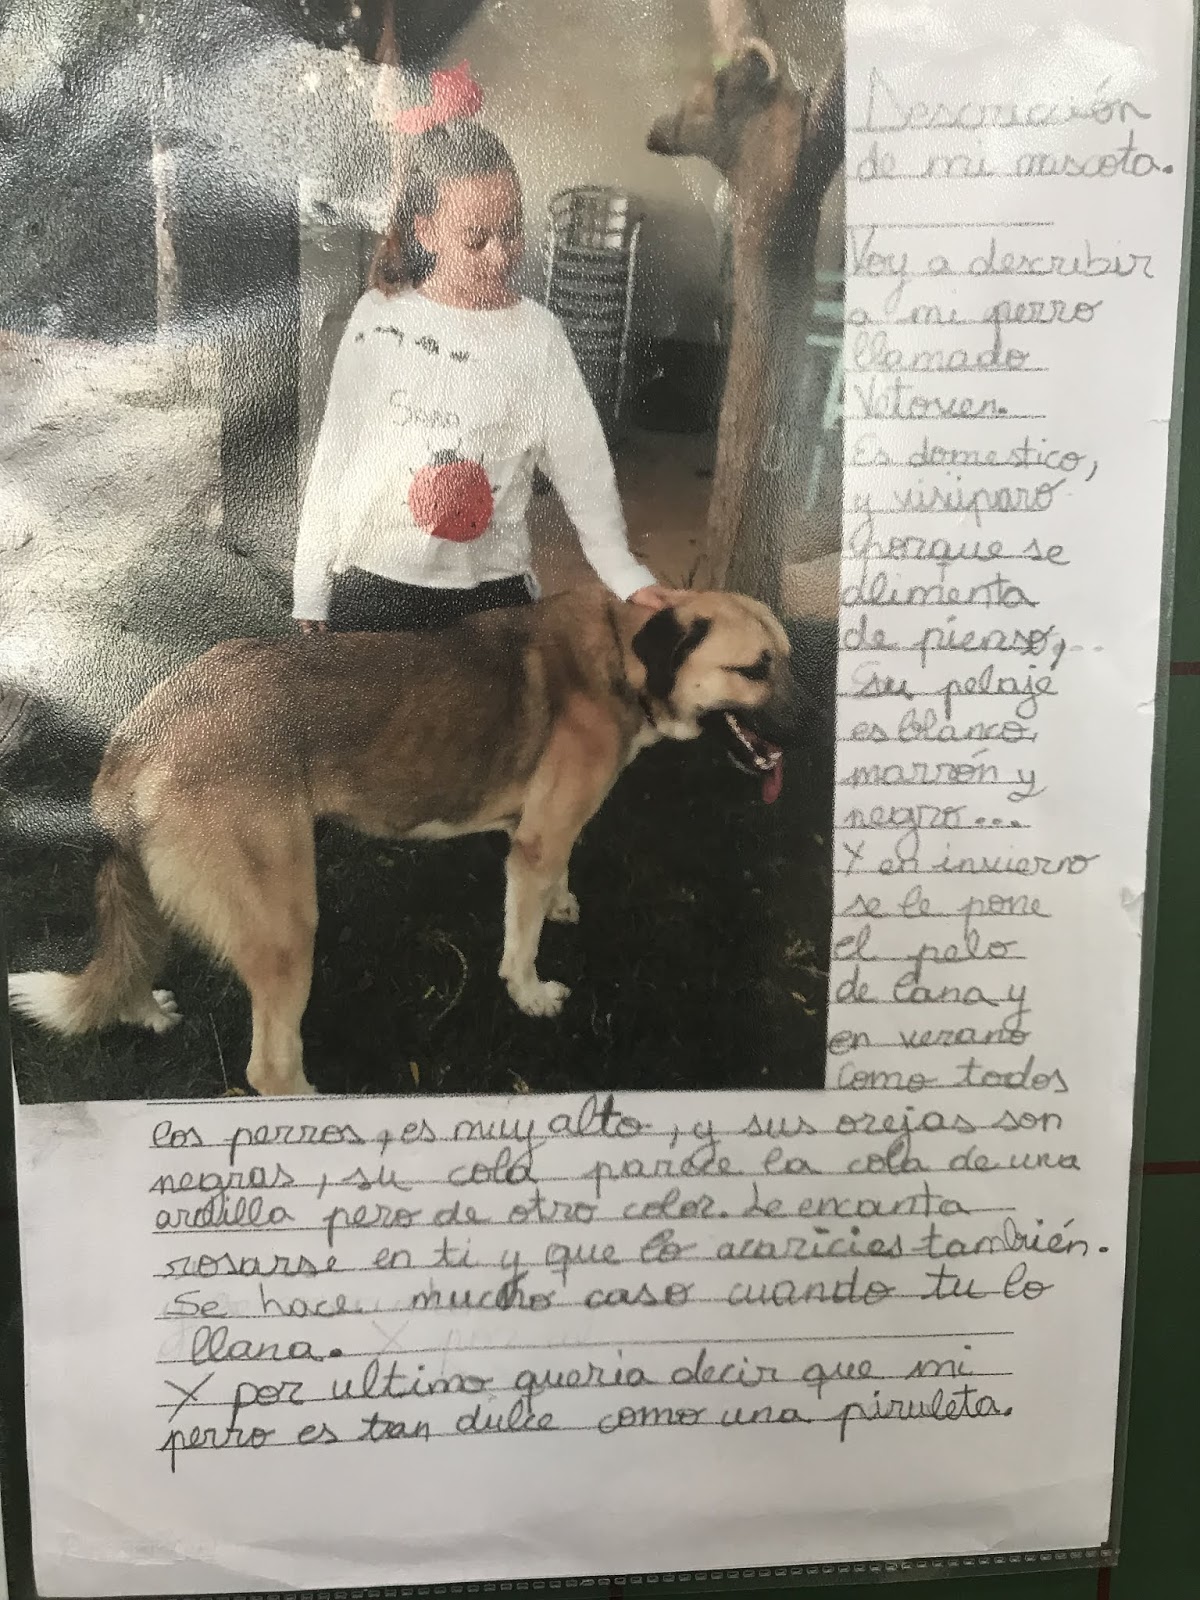 Descrición
de mi mascota.
Voy a describir
a mi perro
llamado
Vatoven.
Es domestico,
y visiiparo
porque se
alimenta
de pienso,...
Su pelaje
es blanco,
marrón y
negro...
Y en invierno
se le pone
el pelo
de lana y
en verano
como todos
los perros, es muy alto, y sus orejas son
negras, su cola parece la cola de una
ardilla pero de otro color. Le encanta
rosarse en ti y que lo acaricies también.
Se hace mucho caso cuando tu lo
llana.
Y por ultimo queria decir que mi
perro es tan dulce como una piruleta.
Sara